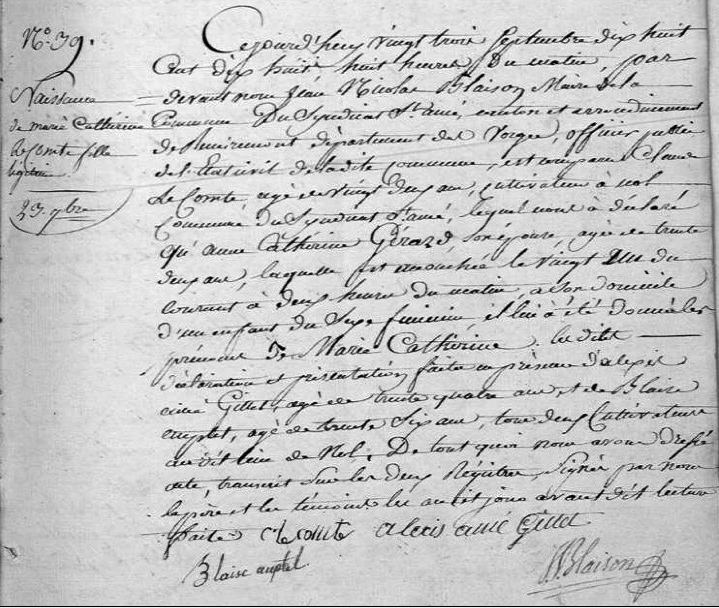 N.o 39.
Naissance
de marie Catherine
LeComte fille
légitime
23. 7bre
Cejourd'huy vingt trois Septembre dix huit
Cent dix huit huit heures du matin, par
devant nous Jean Nicolas Blaison Maire de la
Commune Du Syndicat St. amé, canton et arrondissement
de Remiremont département des Vosges, officier public
de l'Etat civil de ladite commune, est comparu Claude
Le Comte, agé de vingt deux ans, cultivateur à nol
commune du Syndicat St. amé, lequel nous à déclaré
qu'anne Catherine Gérard, son épouse, agée de trente
deux ans, laquelle est accouchée le vingt un du
courant à deux heures du matin, a son domicile
d'un enfant du Sexe feminin, et lui à été donné les
prénoms de Marie Catherine. les dites
déclaration et présentation faite en présence d'alexis
aimé Gillet, agé de trente quatre ans, et de Blaise
auptel, agé de trente Six ans, tous deux Cultivateurs
audit lieu de Nol. De tout quoi nous avons dressé
acte, transcrit Sur les deux Régistres, Signés par nous
le père et les témoins les an et jour avant dit lecture
faite. C le comte alexis aimé Gillet
Blaise auptel JNBlaison